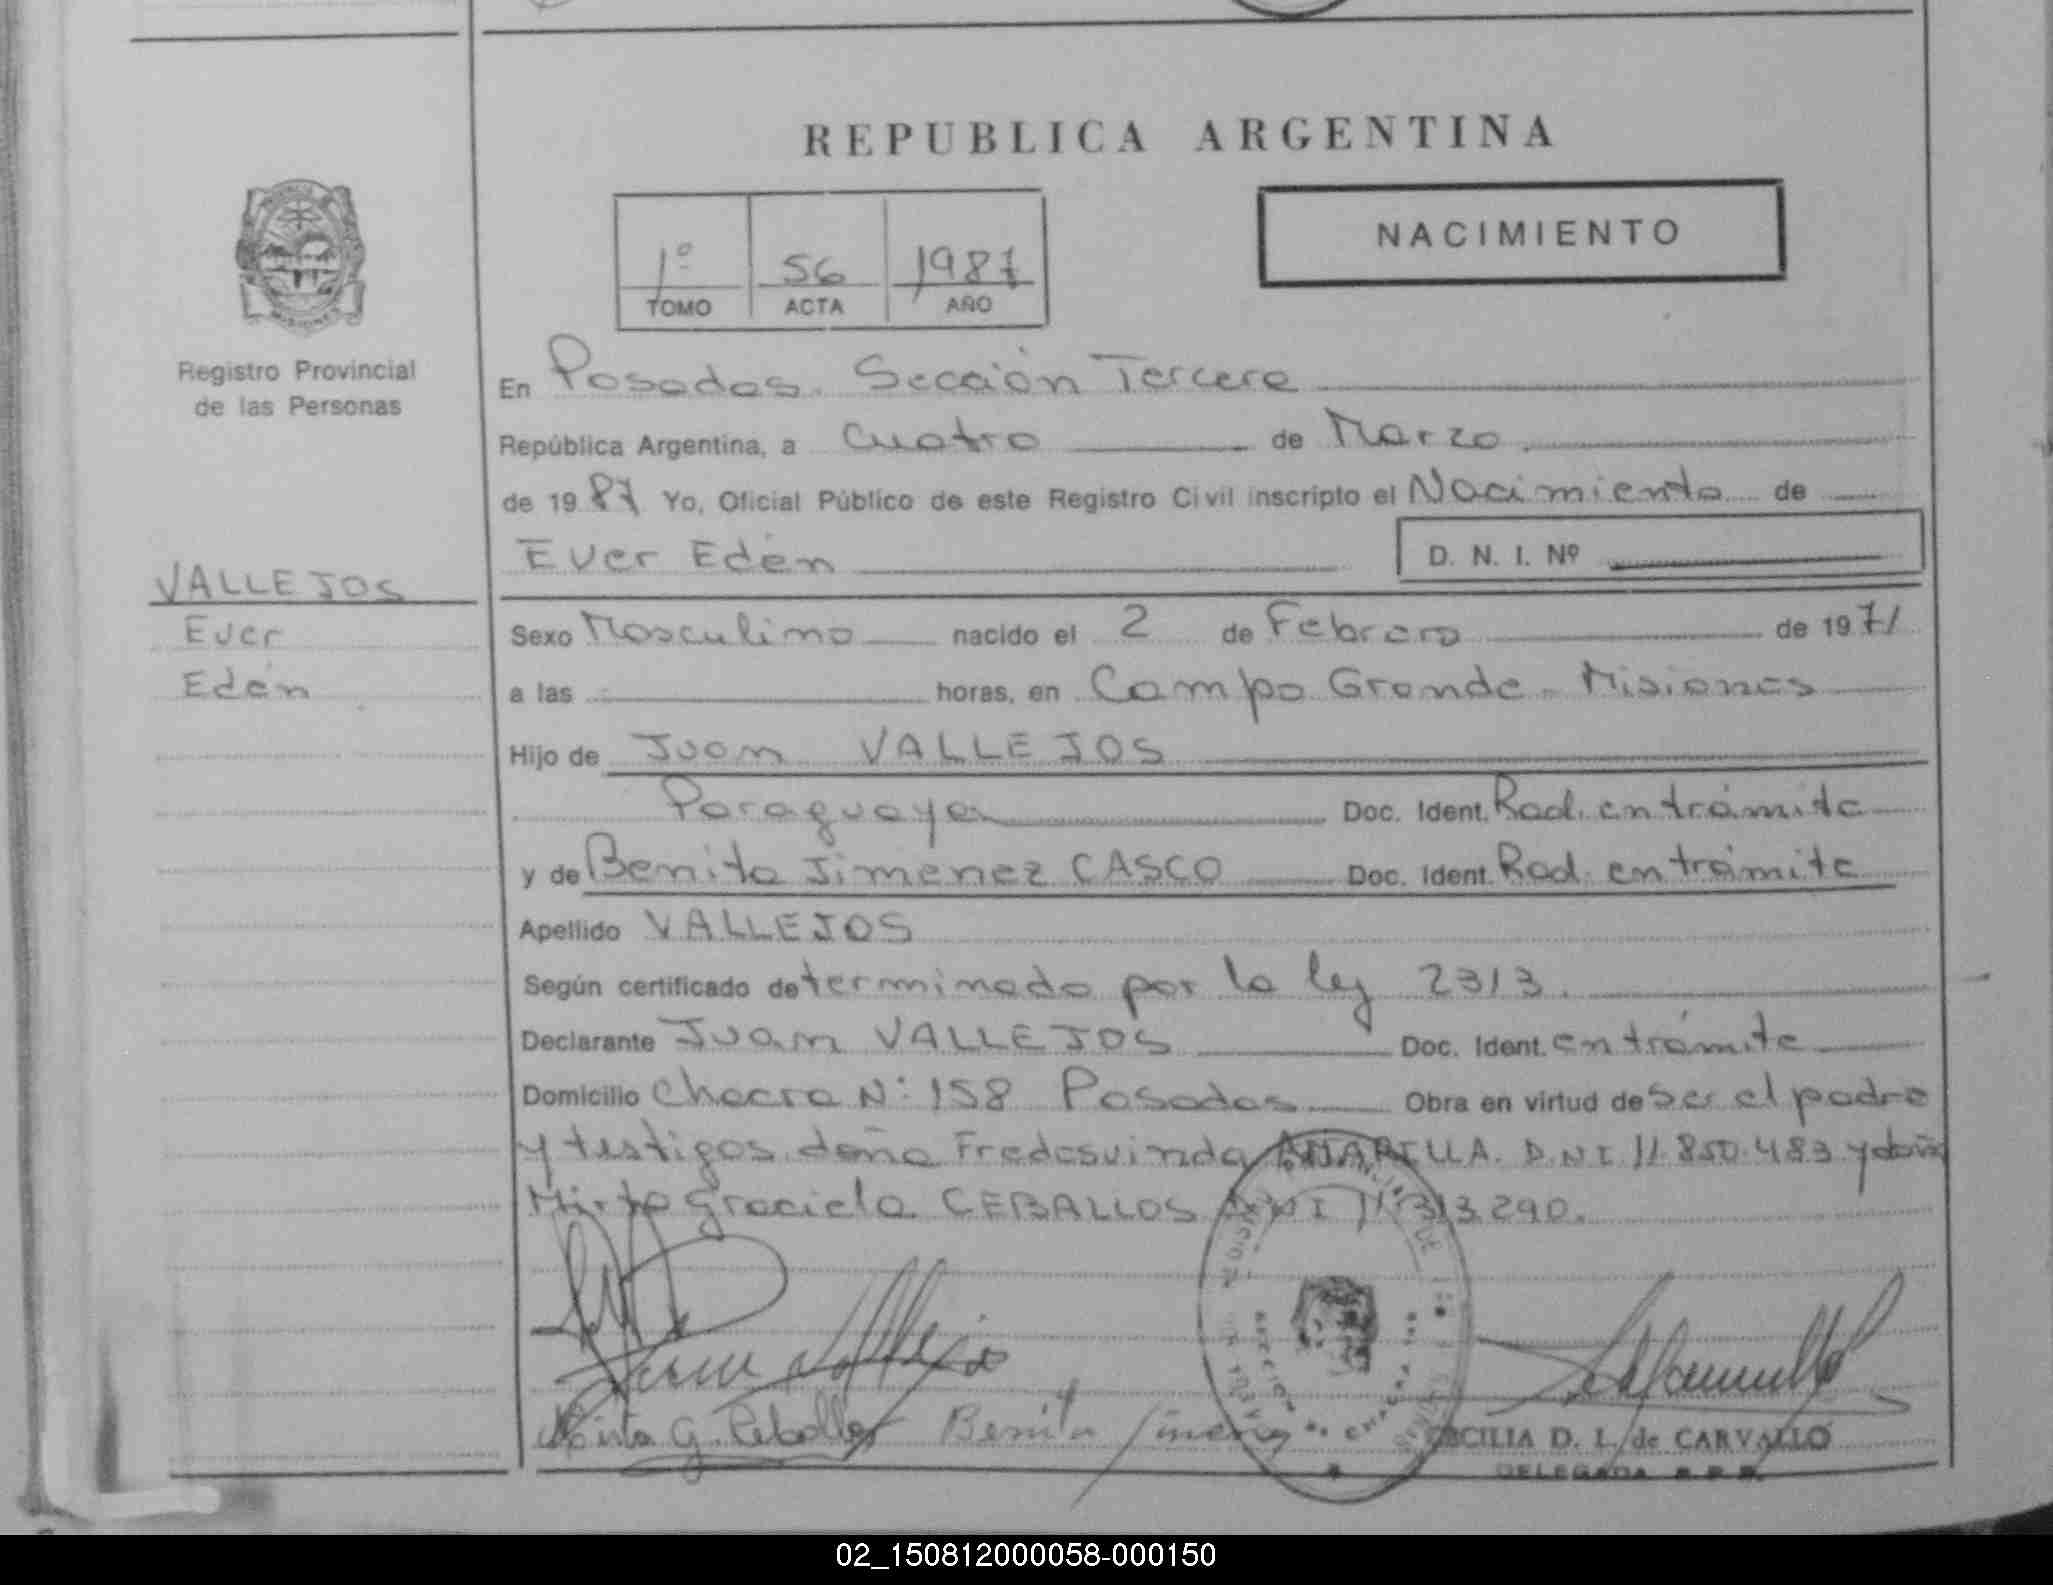 REPUBLICA ARGENTINA
NACIMIENTO
1º 56 1987
TOMO ACTA AÑO
MISIONES
Registro Provincial
de las Personas
En Posadas. Sección Tercera
República Argentina, a cuatro de Marzo
de 1987 Yo, Oficial Público de este Registro Civil inscripto el Nacimiento de
Ever Edén D. N. I. Nº
VALLEJOS
Ever
Edén
Sexo Masculino nacido el 2 de Febrero de 1971
a las horas, en Campo Grande - Misiones
Hijo de Juan VALLEJOS
Paraguaya Doc. Ident. Rad. en trámite
y de Benita Jimenez CASCO Doc. Ident. Rad. en trámite
Apellido VALLEJOS
Según certificado determinado por la ley 2313.
Declarante Juan VALLEJOS Doc. Ident. en trámite
Domicilio Chacra Nº 158 Posadas Obra en virtud de ser el padre
y testigos doña Fredesvinda AMARILLA. D.N.I 11.850.483 y doña
Mirta Graciela CEBALLOS D.N.I 11.313.290.
Juan Vallejos
Mirta G. Ceballos Benita Jimenez
CECILIA D. I. de CARVALLO
DELEGADA R.P.P.
02_150812000058-000150